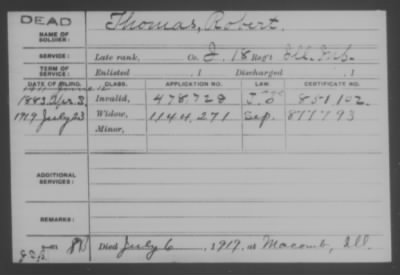 DEAD
NAME OF SOLDIER: Thomas, Robert.
SERVICE: Late rank, Co. I. 18 Reg't Ill. Inf.
TERM OF SERVICE: Enlisted , 1 Discharged , 1
DATE OF FILING. CLASS. APPLICATION NO. LAW. CERTIFICATE NO.
1883 Apr. 3, Invalid, 478,728 851,102.
1917 July 23 Widow, 1144,271 Sep. 817793
Minor,
ADDITIONAL SERVICES:
REMARKS:
Died July 6, 1917, at Macomb, Ill.